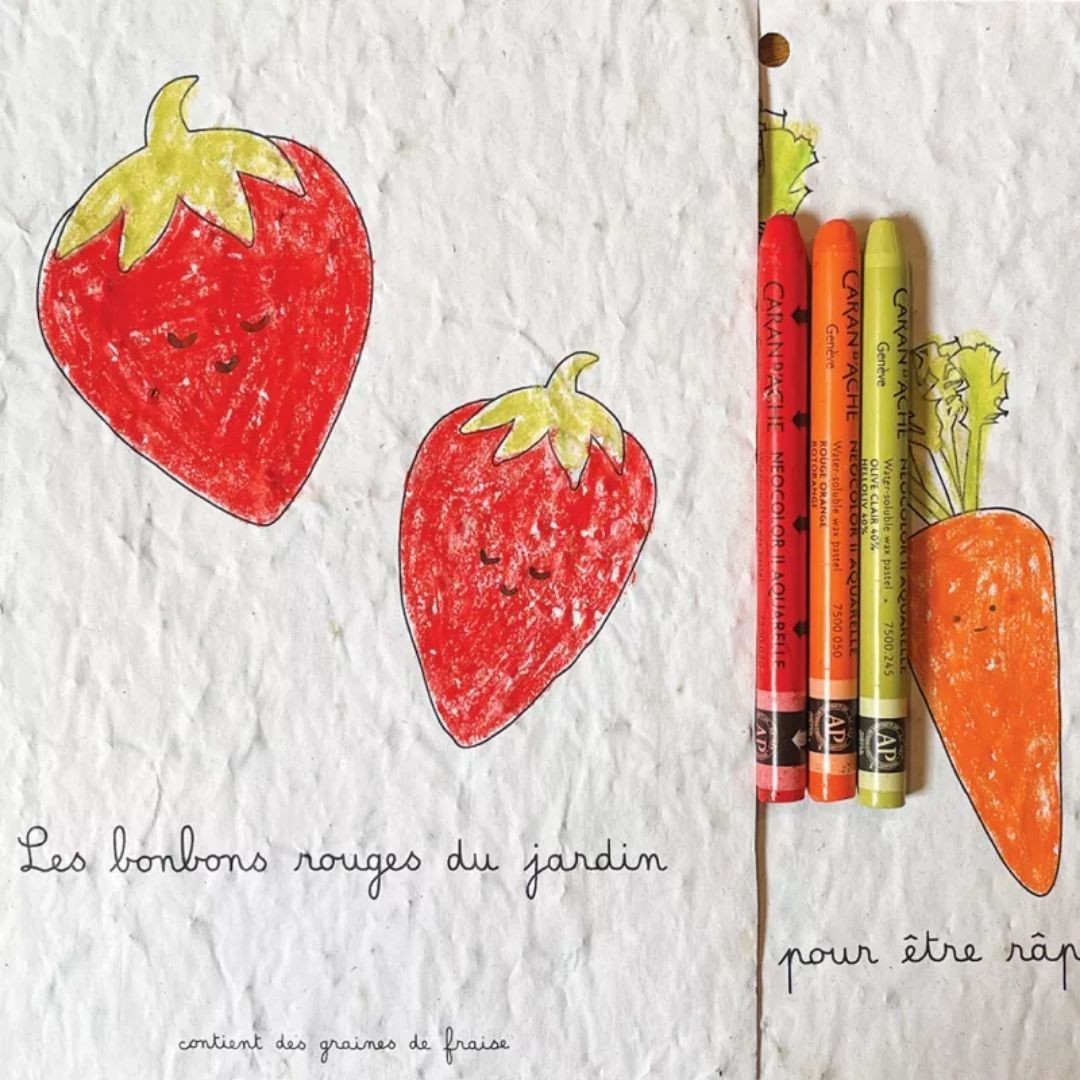 Les bonbons rouges du jardin
contient des graines de fraise
CARAN D'ACHE NEOCOLOR II AQUARELLE
CARAN D'ACHE NEOCOLOR II AQUARELLE
Genève Water-soluble wax pastel 7500.050
ROUGE ORANGE
ROTORANGE
AP
CARAN D'ACHE NEOCOLOR II AQUARELLE
Genève Water-soluble wax pastel 7500.245
OLIVE CLAIR 40%
HELLOLIV 40%
AP
pour être râp